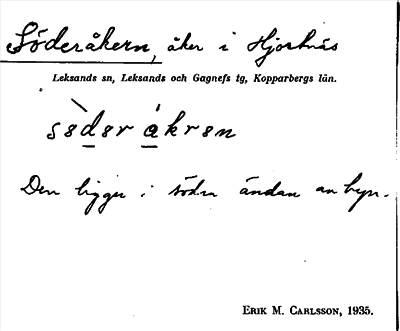 Söderåkern, åker i Hjortnäs
Leksands sn, Leksands och Gagnefs tg, Kopparbergs län.
sødør åkrøn
Den ligger i södra ändan av byn.
ERIK M. CARLSSON, 1935.